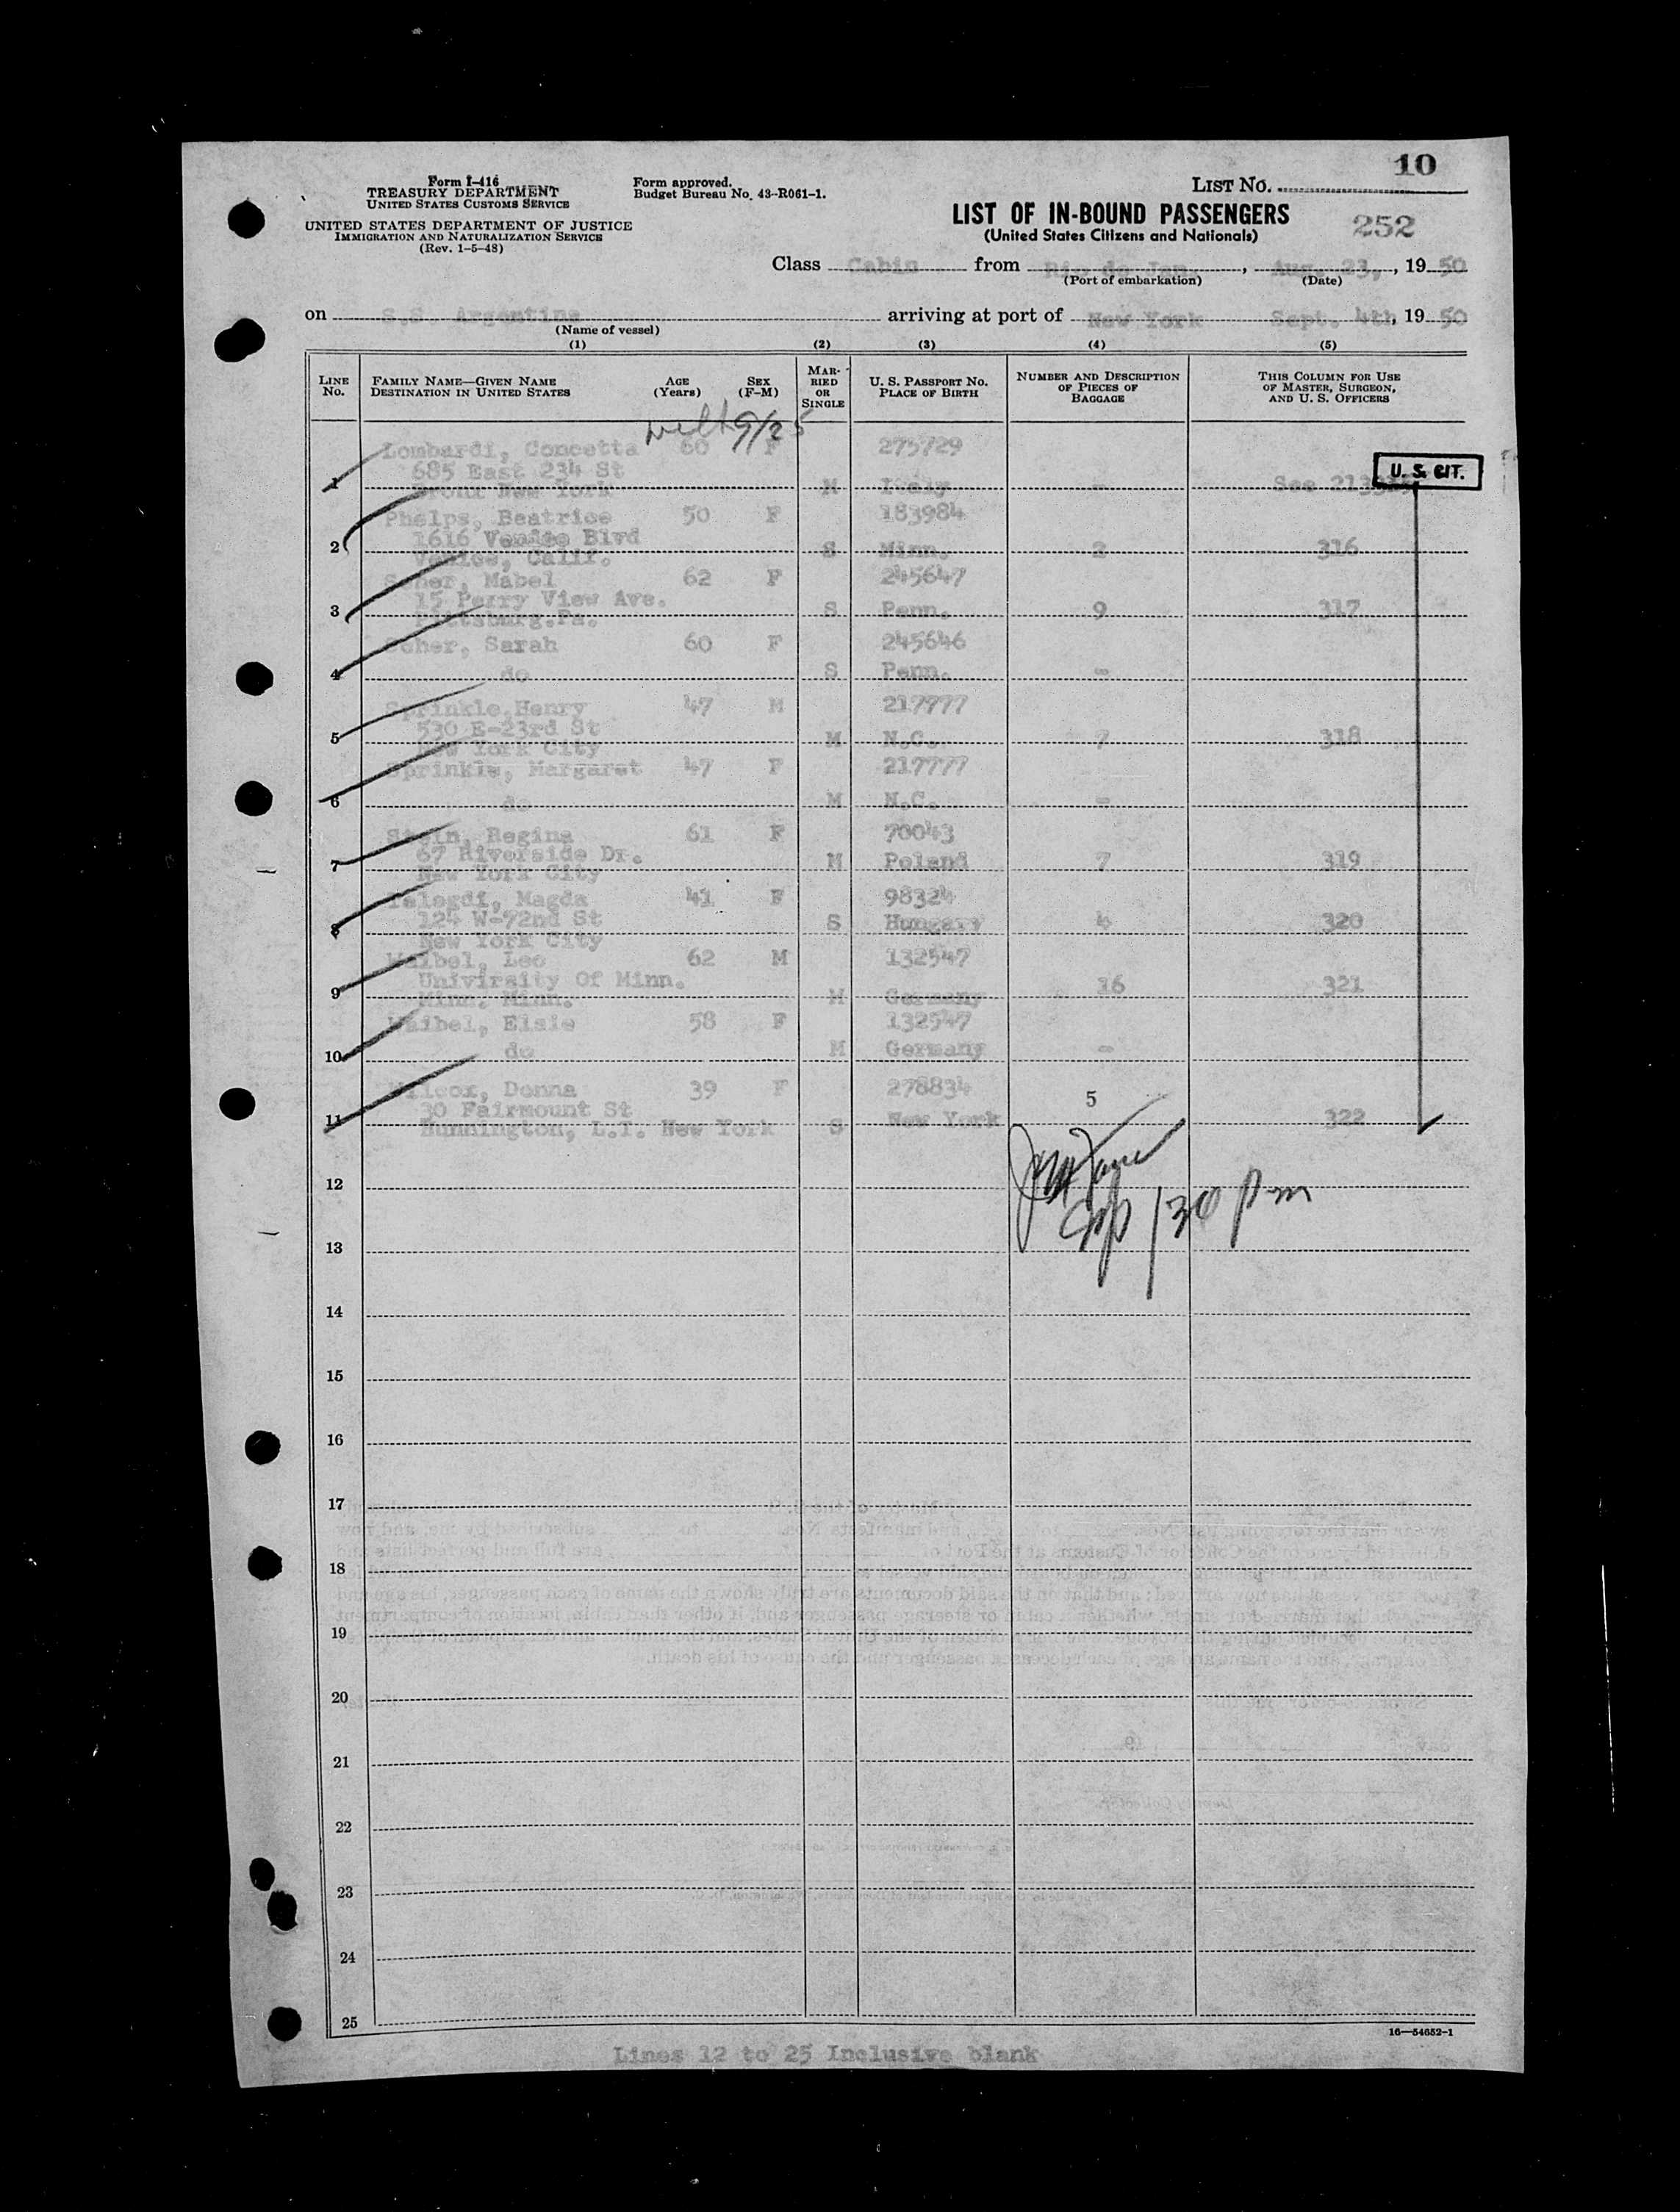 10
Form I-416
TREASURY DEPARTMENT
UNITED STATES CUSTOMS SERVICE
UNITED STATES DEPARTMENT OF JUSTICE
IMMIGRATION AND NATURALIZATION SERVICE
(Rev. 1-5-48)
Form approved.
Budget Bureau No. 43-R061-1.
LIST NO.
LIST OF IN-BOUND PASSENGERS
(United States Citizens and Nationals)
252
Class Cabin from Rio de Jan. , Aug. 23, , 19 50
(Port of embarkation) (Date)
on S.S Argentina arriving at port of New York Sept. 4th , 19 50
(Name of vessel)
(1) (2) (3) (4) (5)
LINE NO. FAMILY NAME—GIVEN NAME DESTINATION IN UNITED STATES AGE (Years) SEX (F-M) MARRIED OR SINGLE U. S. PASSPORT NO. PLACE OF BIRTH NUMBER AND DESCRIPTION OF PIECES OF BAGGAGE THIS COLUMN FOR USE OF MASTER, SURGEON, AND U. S. OFFICERS
9/25
Lombardi, Concetta 60 F 275729
685 East 234 St
1 Bronx New York M Italy - See
U. S. CIT.
Phelps, Beatrice 50 F 183984
1616 Venice Blvd
2 Venice, Calif. S Minn. 2 316
Scher, Mabel 62 F 245647
15 Perry View Ave.
3 Pittsburg.Pa. S Penn. 9 317
Scher, Sarah 60 F 245646
4 do S Penn. -
Sprinkle,Henry 47 M 217777
530 E-23rd St
5 New York City M N.C. 7 318
Sprinkle, Margaret 47 F 217777
6 do M N.C. -
Stein, Regina 61 F 70043
67 Riverside Dr.
7 New York City M Poland 7 319
Telegdi, Magda 41 F 98324
124 W-72nd St
8 New York City S Hungary 4 320
Waibel, Leo 62 M 132547
Univirsity Of Minn.
9 Minn. Minn. M Germany 16 321
Waibel, Elsie 58 F 132547
10 do M Germany -
Wilcox, Donna 39 F 278834
30 Fairmount St 5
11 Hunnington, L.I. New York S New York 322
12
130 pm
13
14
15
16
17
18
19
20
21
22
23
24
25
16—54652-1
Lines 12 to 25 Inclusive blank